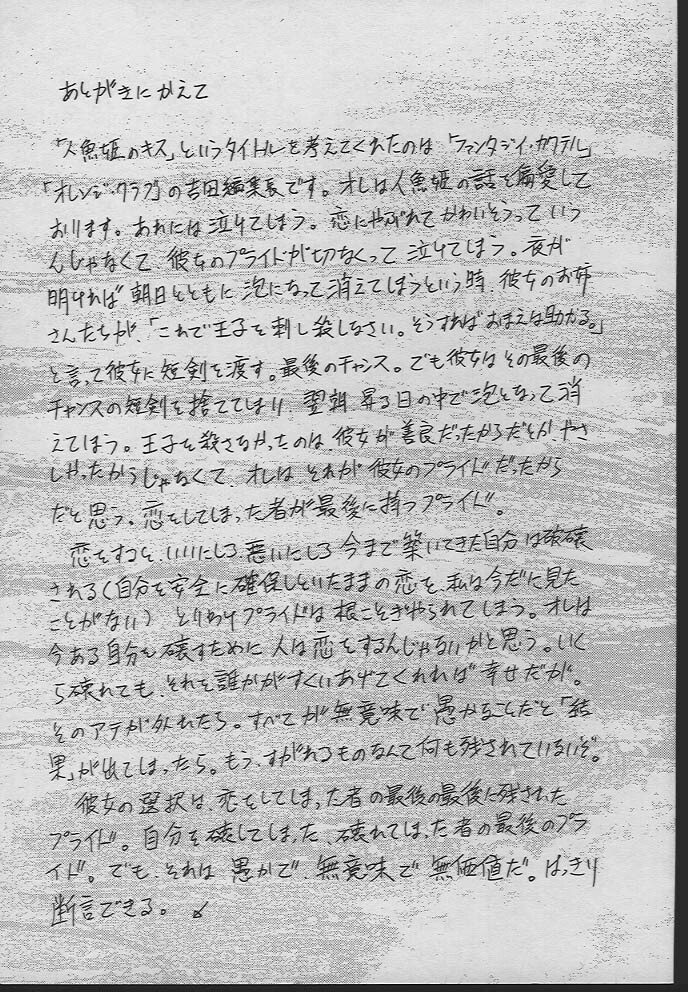 あとがきにかえて
「人魚姫のキス」というタイトルを考えてくれたのは「ファンタジィ・カクテル」
「オレンジ・クラブ」の吉田編集長です。オレは人魚姫の話を偏愛して
おります。あれには泣けてしまう。恋にやぶれてかわいそうっていう
んじゃなくて、彼女のプライドが切なくって泣けてしまう。夜が
明ければ朝日とともに泡になって消えてしまうという時、彼女のお姉
さんたちが、「これで王子を刺し殺しなさい。そうすればおまえは助かる。」
と言って彼女に短剣を渡す。最後のチャンス。でも彼女はその最後の
チャンスの短剣を捨ててしまい、翌朝、昇る日の中で泡となって消
えてしまう。王子を殺さなかったのは、彼女が善良だったからだとか、やさ
しかったからじゃなくて、オレは、それが彼女のプライドだったから
だと思う。恋をしてしまった者が最後に持つプライド。
恋をすると、いいにしろ悪いにしろ今まで築いてきた自分は破壊
される(自分を安全に確保しといたままの恋を、私は今だに見た
ことがない) とりわけプライドは根こそぎやられてしまう。オレは
今ある自分を壊すために人は恋をするんじゃないかと思う。いく
ら壊れても、それを誰かがすくいあげてくれれば幸せだが。
そのアテが外れたら。すべてが無意味で愚かなことだと「結
果」が出てしまったら。もう、すがれるものなんて何も残されていないぞ。
彼女の選択は、恋をしてしまった者の最後の最後に残された
プライド。自分を壊してしまった、壊れてしまった者の最後のプラ
イド。でも、それは愚かで、無意味で無価値だ。はっきり
断言できる。